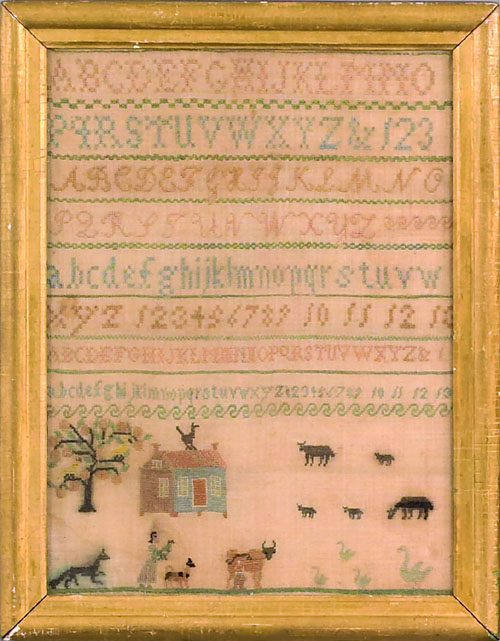 ABCDEFGHIJKLMNO
PQRSTUVWXYZ& 123
ABCDEFGHIJKLMNO
PQRSTUVWXYZ
abcdefghijklmnopqrstuvw
xyz 123456789 10 11 12 13
ABCDEFGHIJKLMNOPQRSTUVWXYZ&
abcdefghijklmnopqrstuvwxyz123456789 10 11 12 13